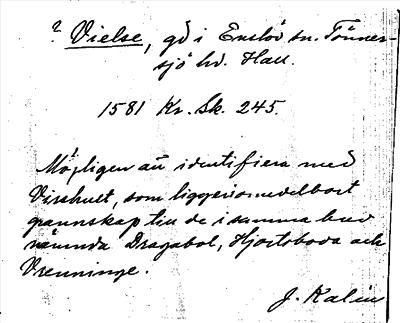 ? Vielse, gd i Enslöv sn. Tönner-
sjö hd. Hall.
1581 Kr. Sk. 245.
Möjligen att identifiera med
Visshult, som ligger i omedelbart
grannskap till de i samma brev
nämnda Dragabol, Hjortsboda och
Vrenninge.
J. Kalén